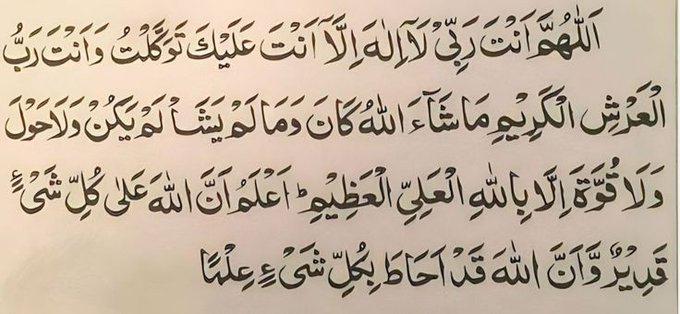 اَللّٰهُمَّ اَنْتَ رَبِّیْ لَاۤ اِلٰهَ اِلَّاۤ اَنْتَ عَلَيْكَ تَوَكَّلْتُ وَاَنْتَ رَبُّ
الْعَرْشِ الْكَرِيْمِ مَا شَآءَ اللّٰهُ كَانَ وَمَا لَمْ يَشَاْ لَمْ يَكُنْ وَلَا حَوْلَ
وَلَا قُوَّةَ اِلَّا بِاللّٰهِ الْعَلِیِّ الْعَظِيْمِ ؕ اَعْلَمُ اَنَّ اللّٰهَ عَلٰى كُلِّ شَیْءٍ
قَدِيْرٌ وَّاَنَّ اللّٰهَ قَدْ اَحَاطَ بِكُلِّ شَیْءٍ عِلْمًا